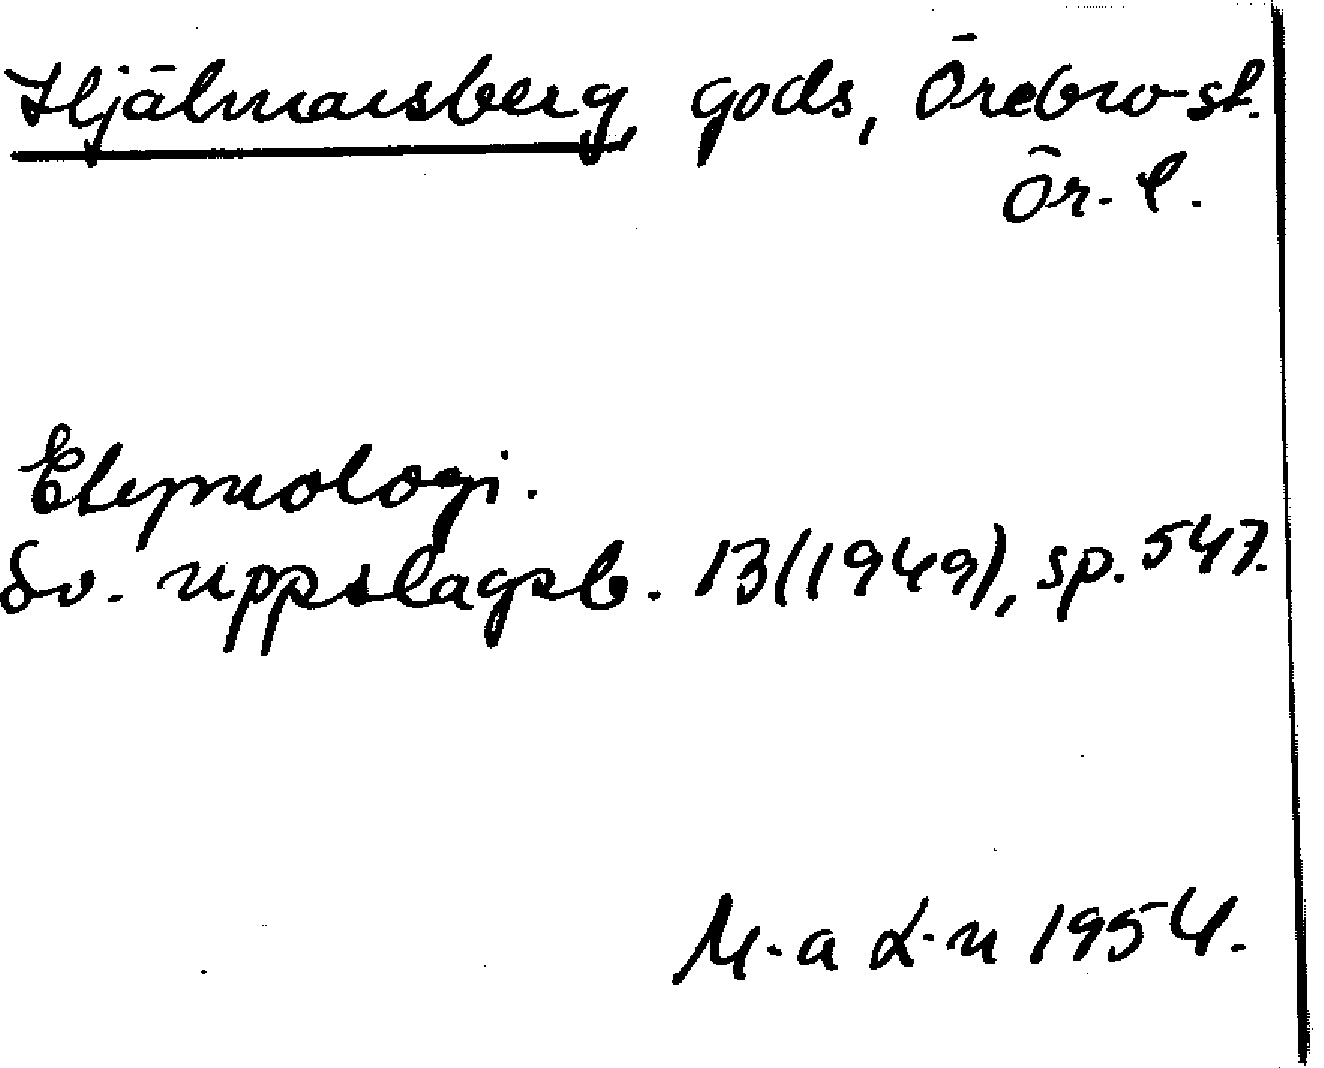 Hjälmarsberg, gods, Örebro st.
Ör. l.
Etymologi.
Sv. uppslagsb. 13(1949), sp. 547.
M-a L-n 1954.